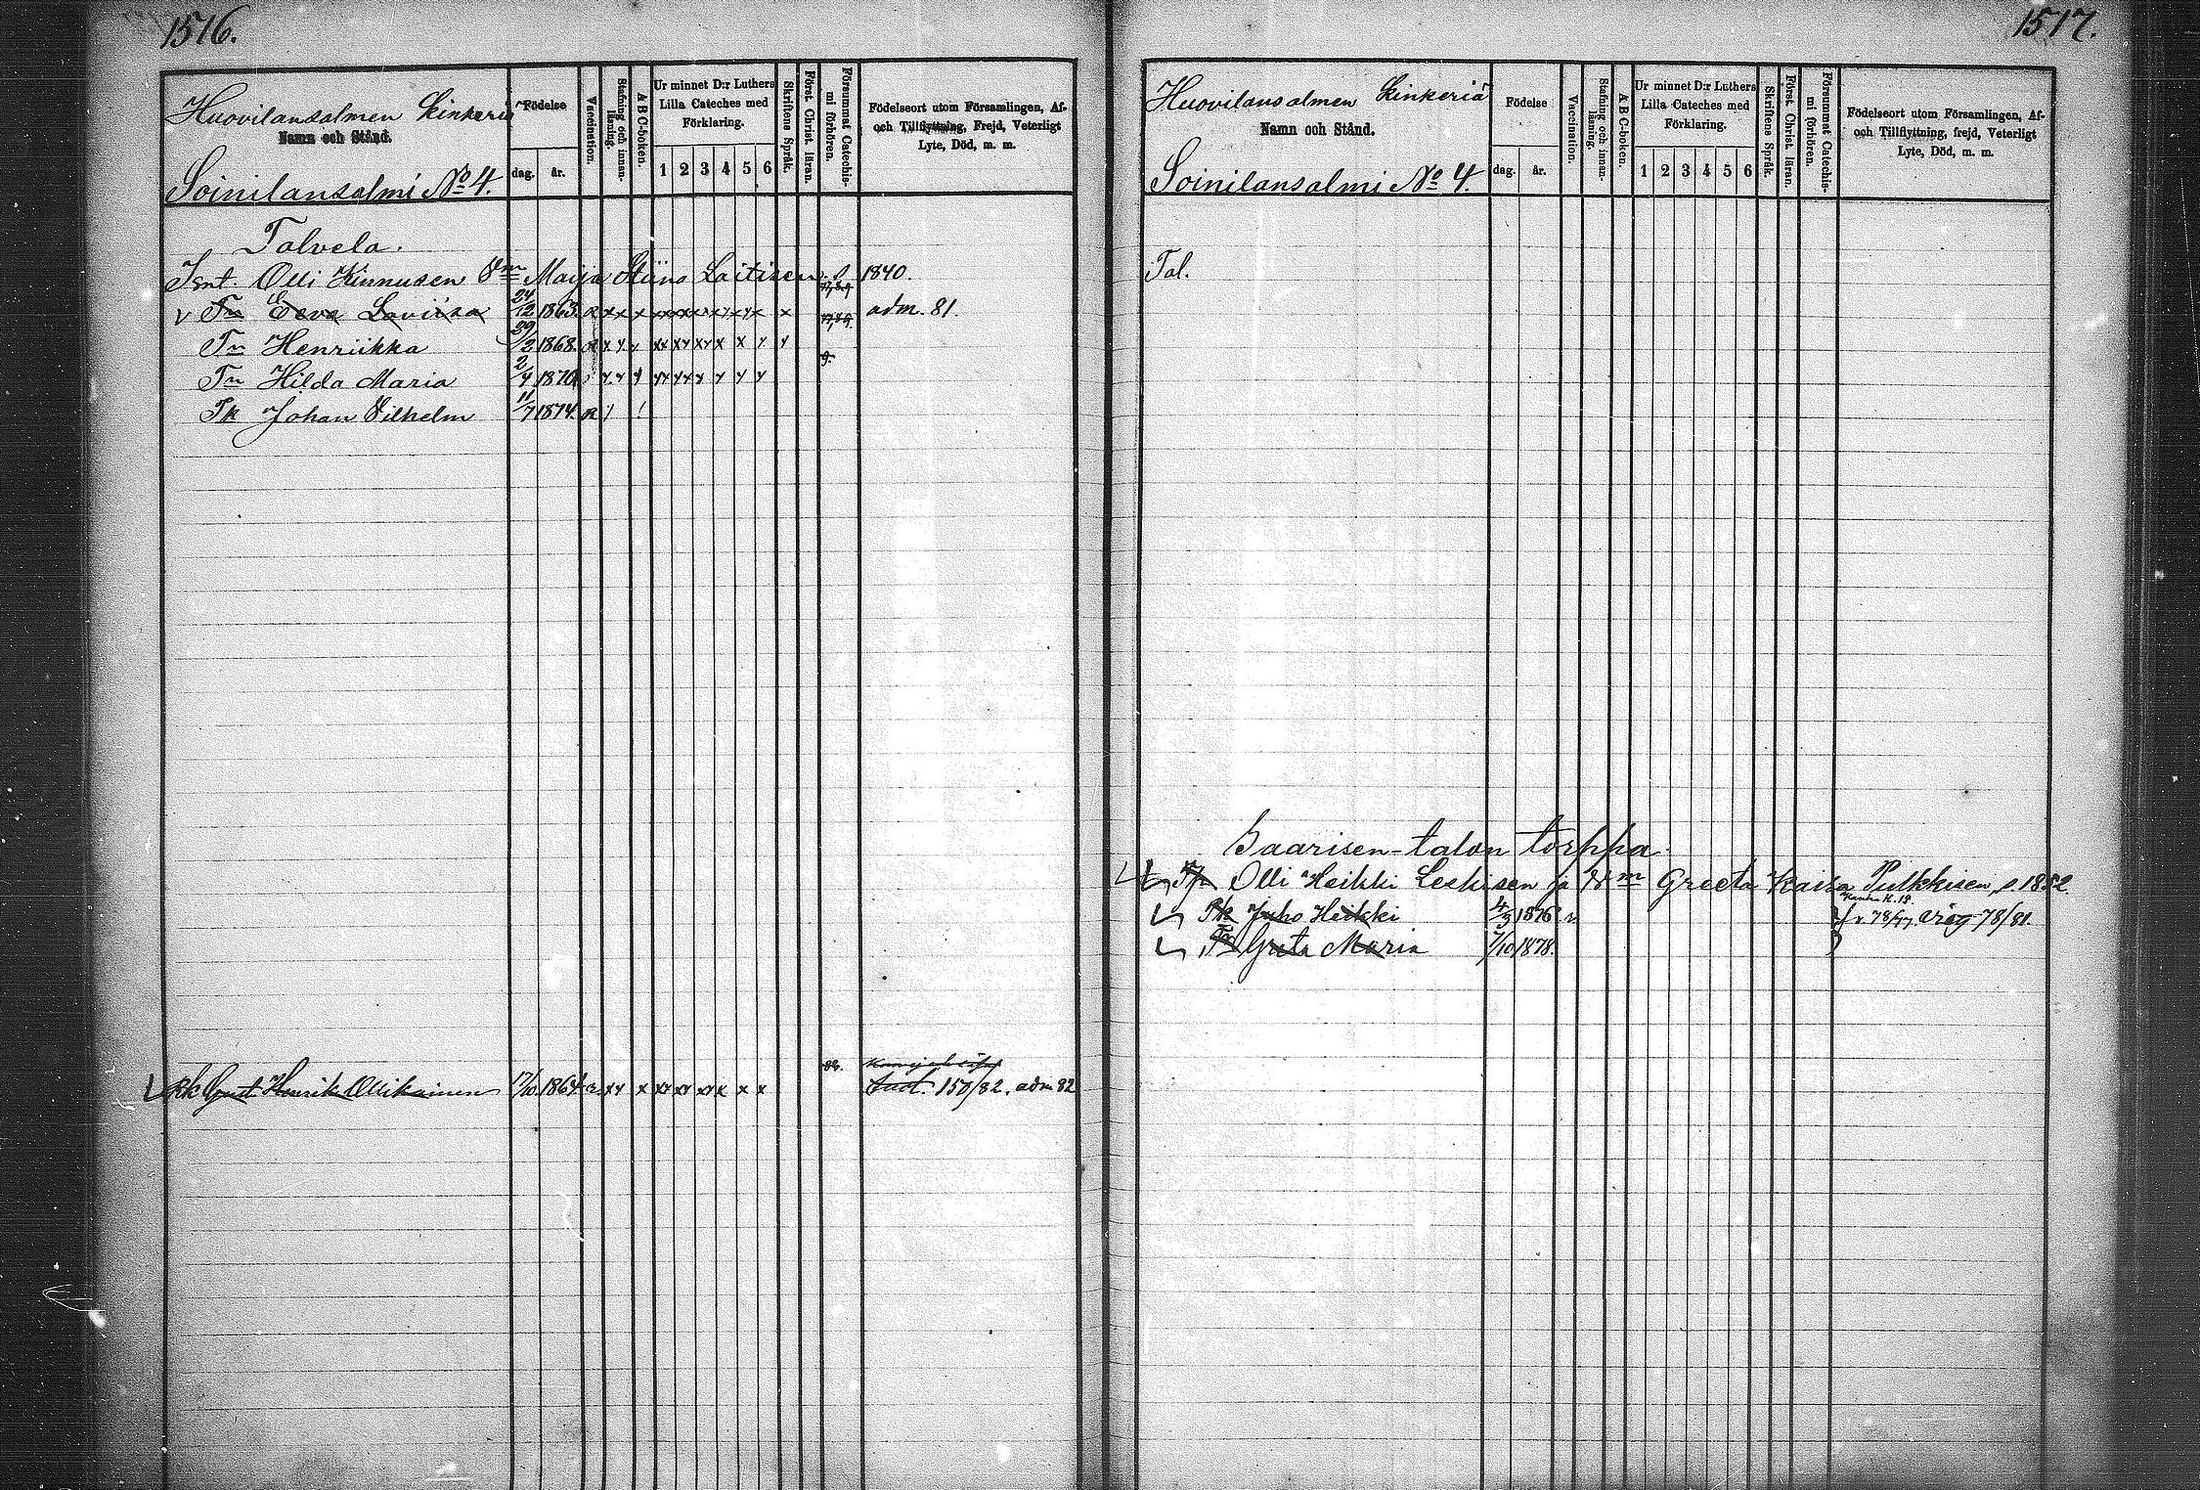 1516.
Huovilansalmen kinkeriä
Namn och Stånd.
Soinilansalmi No 4.
Födelse
dag.
år.
Vaccination.
Stafning och innan-
läsning.
A B C-boken.
Ur minnet D:r Luthers
Lilla Cateches med
Förklaring.
1 2 3 4 5 6
Skriftens Språk.
Först. Christ. läran.
Försummat Catechis-
mi förhören.
Födelseort utom Församlingen, Af-
och Tillflyttning, Frejd, Veterligt
Lyte, Död, m. m.
Talvela.
Olli Kinnusen Vm Maija Stiina Laitisen s. 1840.
v Tr Eeva Loviisa 24/12 1863. R x x x xx xx x x x x x 77,8,9. adm. 81.
Tr Henriikka 29/2 1868. R x x x xx xx xx x x x x
Tr Hilda Maria 2/4 1870 x x x xx xx x x x x 9.
Pk Johan Vilhelm 11/7 1874. R
Rk Gust Henrik Ollikainen 17/10. 1864. R. xx x xx xx xx x x x 82.
150/82. adm 82
1517.
Huovilansalmen kinkeriä
Namn och Stånd.
Soinilansalmi No 4.
Födelse
dag.
år.
Vaccination.
Stafning och innan-
läsning.
A B C-boken.
Ur minnet D:r Luthers
Lilla Cateches med
Förklaring.
1 2 3 4 5 6
Skriftens Språk.
Först. Christ. läran.
Försummat Catechis-
mi förhören.
Födelseort utom Församlingen, Af-
och Tillflyttning, frejd, Veterligt
Lyte, Död, m. m.
Tal.
Saarisen-talon torppa.
Olli Heikki Leskisen ja Vm Greeta Kaisa Pulkkisen s. 1852
Pk Juho Heikki 4/3 1876 r. 78/81
Greta Maria 7/10 1878.